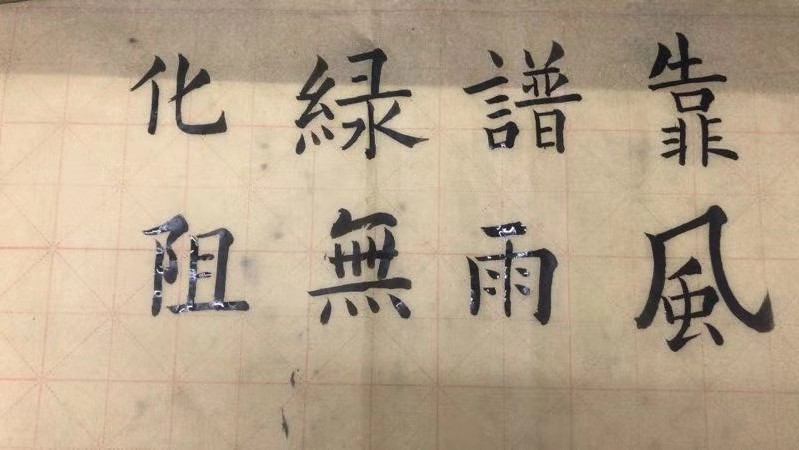 靠譜緑化
風雨無阻